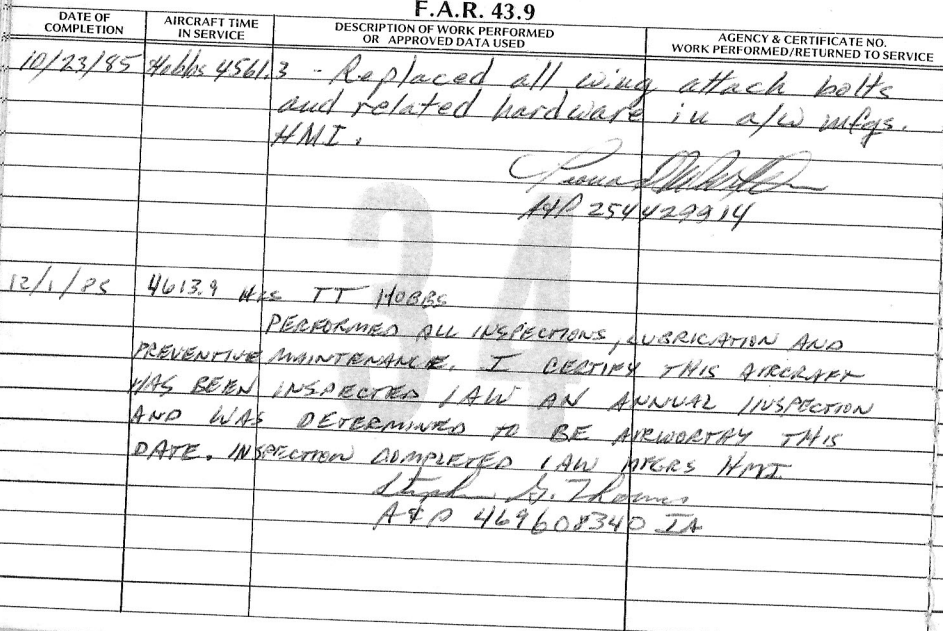 F.A.R. 43.9
DATE OF COMPLETION
AIRCRAFT TIME IN SERVICE
DESCRIPTION OF WORK PERFORMED OR APPROVED DATA USED
AGENCY & CERTIFICATE NO. WORK PERFORMED/RETURNED TO SERVICE
34
10/23/85 Hobbs 4561.3 - Replaced all wing attach bolts
and related hardware in a/w mfgs.
HMI.
A&P 254429914
12/1/85 4613.9 HRS TT HOBBS
PERFORMED ALL INSPECTIONS, LUBRICATION AND
PREVENTIVE MAINTENANCE. I CERTIFY THIS AIRCRAFT
HAS BEEN INSPECTED IAW AN ANNUAL INSPECTION
AND WAS DETERMINED TO BE AIRWORTHY THIS
DATE. INSPECTION COMPLETED IAW MFGRS HMI
Stephen G. Thomas
A&P 469608340 IA